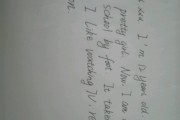 I'm years old
pretty girl. Now I am
school by foot. It takes
I like watching TV.